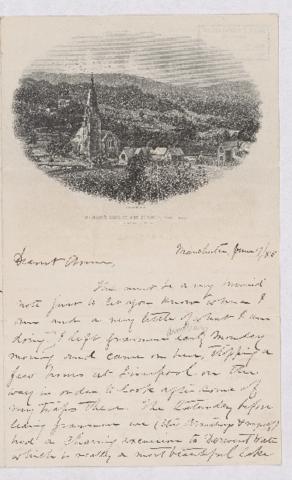 Manchester, June 9/85
Dearest Anna,
This must be a very hurried
note just to let you know where I
am and a very little of what I am
doing. I left Grasmere early Monday
morning and came on here, stopping a
few hours at Liverpool on the
way in order to look after some of
my traps there. The Saturday before
leaving Grasmere we (the Armitage &
had a charming excursion to Derwentwater
which is really a most beautiful lake